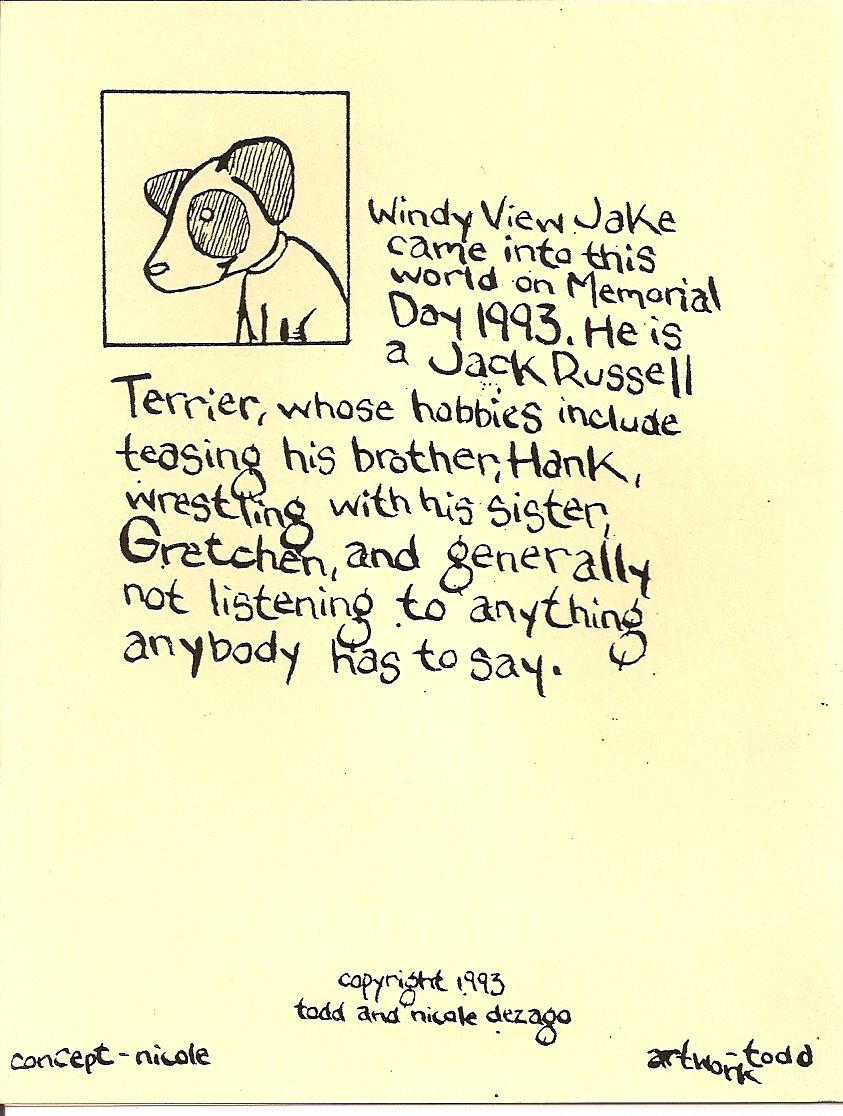 Windy View Jake
came into this
world on Memorial
Day 1993. He is
a Jack Russell
Terrier, whose hobbies include
teasing his brother, Hank,
wrestling with his sister,
Gretchen, and generally
not listening to anything
anybody has to say.
copyright 1993
todd and nicole dezago
concept - nicole
artwork - todd